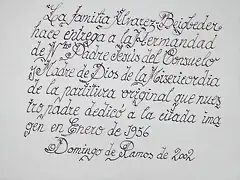 "La familia Álvarez-Beigbeder
hace entrega a la Hermandad
de Ntro. Padre Jesús del Consuelo
y Madre de Dios de la Misericordia
de la partitura original que nues
tro padre dedicó a la citada ima
gen en Enero de 1956
Domingo de Ramos de 2002